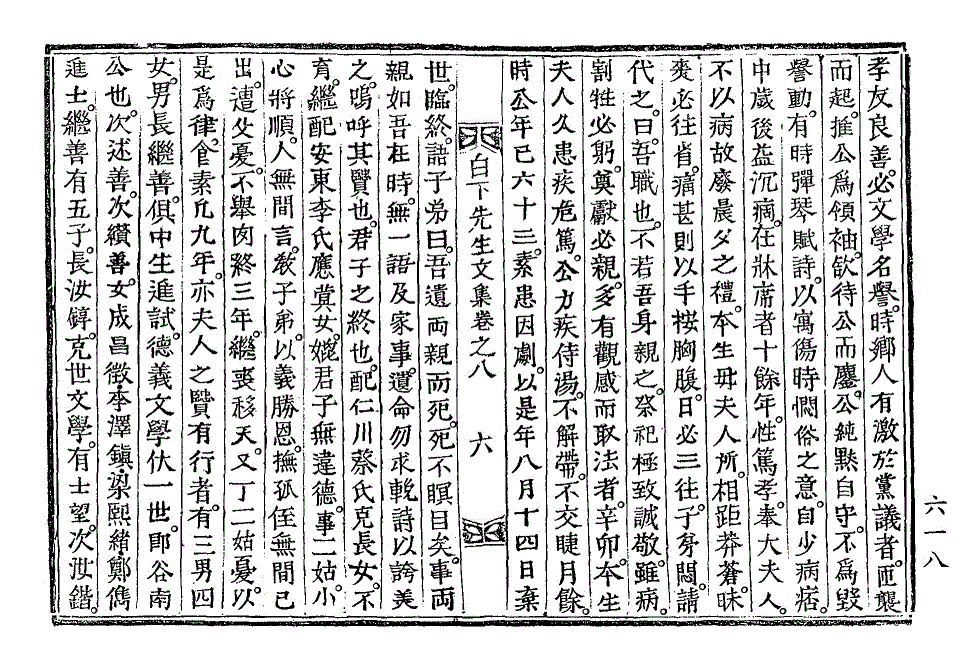 孝友良善。必文學名譽。時鄕人有激於黨議者。匝襲
而起。推公爲領袖。飮待公而鏖。公純黙自守。不爲毀
譽動。有時彈琴賦詩。以寓傷時憫俗之意。自少病痞。
中歲後益沉痼。在牀席者十餘年。性篤孝。奉大夫人。
不以病故廢晨夕之禮。本生母夫人所。相距莽蒼。昧
爽必往省。痛甚則以手按胸腹。日必三往。子旁悶。請
代之。曰。吾職也。不若吾身親之。祭祀極致誠敬。雖病。
割牲必躬。奠獻必親。多有觀感而取法者。辛卯。本生
夫人久患疾危篤。公力疾侍湯。不解帶。不交睫月餘。
時公年已六十三。素患因劇。以是年八月十四日棄
白下先生文集卷之八 六
世。臨終。語子弟曰。吾遺兩親而死。死不瞑目矣。事兩
親如吾在時。無一語及家事。遺命勿求輓詩以誇美
之。嗚呼其賢也。君子之終也。配仁川蔡氏克長女。不
育。繼配安東李氏應蓂女。媲君子無違德。事二姑。小
心將順。人無間言。敎子弟。以義勝恩。撫孤侄無間己
出。遭父憂。不擧肉終三年。繼喪移天。又丁二姑憂。以
是爲律。食素凡九年。亦夫人之賢有行者。有三男四
女。男長繼善。俱中生進試。德義文學伏一世。卽谷南
公也。次述善。次纘善。女成昌徵,李澤鎭,梁熙緖,鄭儁
進士。繼善有五子。長汝錞。克世文學。有士望。次汝鍇。
六一八